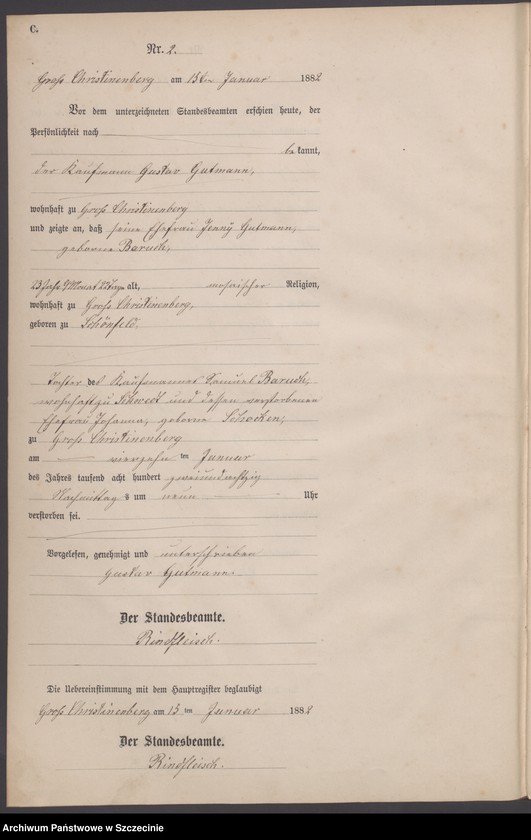 C.
Nr. 2.
Groß Christinenberg am 15ten Januar 1882
Vor dem unterzeichneten Standesbeamten erschien heute, der
Persönlichkeit nach
be kannt,
der Kaufmann Gustav Gutmann,
wohnhaft zu Groß Christinenberg
und zeigte an, daß seine Ehefrau Jenny Gutmann,
geborene Baruch,
23 Jahr 9 Monat 27 Tage alt, mosaischer Religion,
wohnhaft zu Groß Christinenberg,
geboren zu Schönfeld.
Tochter des Kaufmannes Samuel Baruch,
wohnhaft zu Schwedt und dessen verstorbenen
Ehefrau Johanna, geborne Schocken,
zu Groß Christinenberg
am vierzehn ten Januar
des Jahres tausend acht hundert zweiundachtzig
Nachmittag s um neun Uhr
verstorben sei.
Vorgelesen, genehmigt und unterschrieben
Gustav Gutmann.
Der Standesbeamte.
Rindfleisch.
Die Uebereinstimmung mit dem Hauptregister beglaubigt
Groß Christinenberg am 15 ten Januar 1882
Der Standesbeamte.
Rindfleisch.
Archiwum Państwowe w Szczecinie